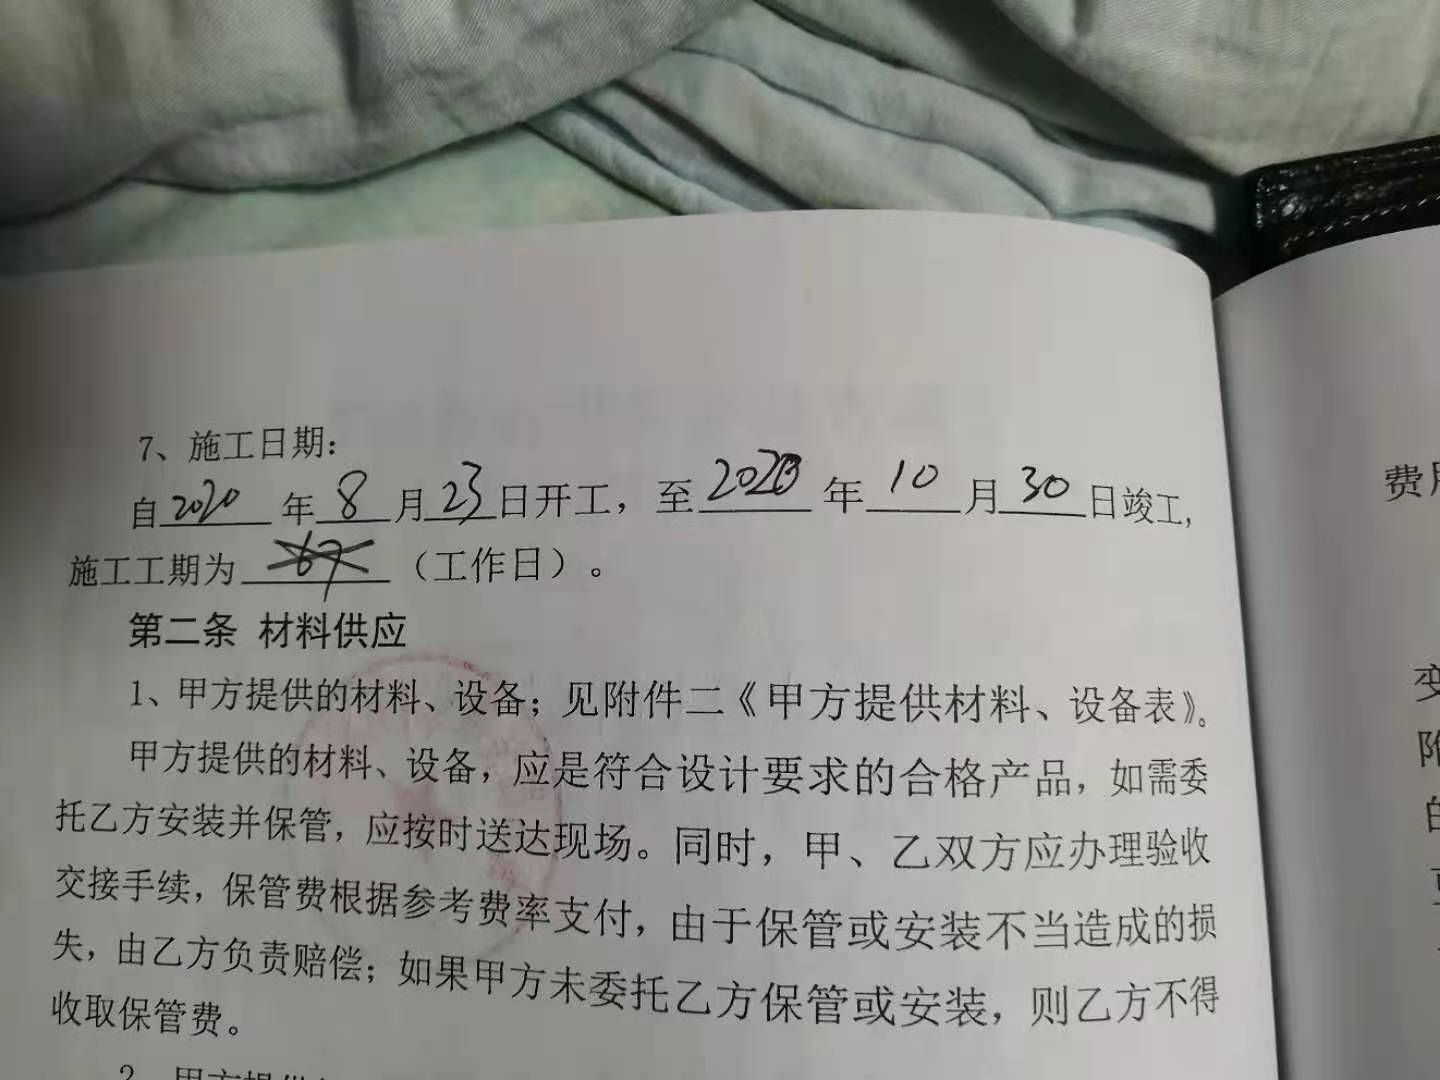 7、施工日期：
自2020年8月23日开工，至2020年10月30日竣工，
施工工期为67（工作日）。
第二条 材料供应
1、甲方提供的材料、设备；见附件二《甲方提供材料、设备表》。
甲方提供的材料、设备，应是符合设计要求的合格产品，如需委
托乙方安装并保管，应按时送达现场。同时，甲、乙双方应办理验收
交接手续，保管费根据参考费率支付，由于保管或安装不当造成的损
失，由乙方负责赔偿；如果甲方未委托乙方保管或安装，则乙方不得
收取保管费。
2、甲方提供
费用
变
附
的